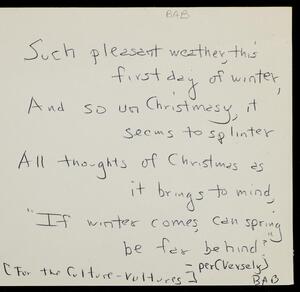 BAB
Such pleasant weather, this
first day of winter,
And so un Christmasy, it
seems to splinter
All thoughts of Christmas as
it brings to mind,
"If winter comes, can spring
be far behind?"
- per(Versely)
[For the Culture-Vultures]
BAB